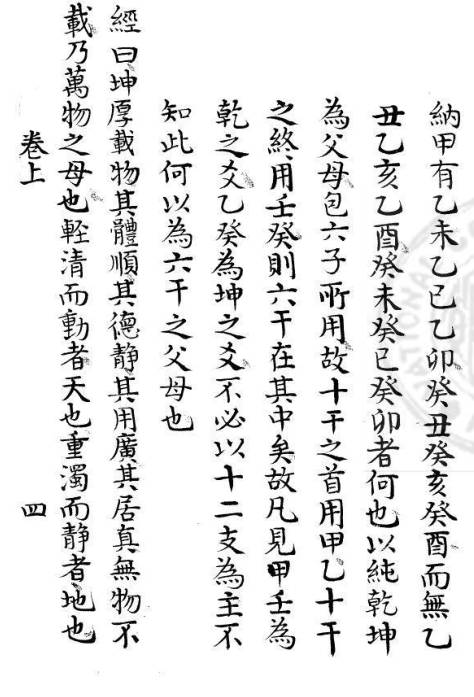 納甲有乙未乙巳乙卯癸丑癸亥癸酉而無乙
丑乙亥乙酉癸未癸巳癸卯者何也以純乾坤
為父母包六子所用故十干之首用甲乙十干
之終用壬癸則六干在其中矣故凡見甲壬為
乾之爻乙癸為坤之爻不必以十二支為主不
知此何以為六干之父母也
經曰坤厚載物其體順其德静其用廣其居真無物不
載乃萬物之母也輕清而動者天也重濁而静者地也
卷上
四